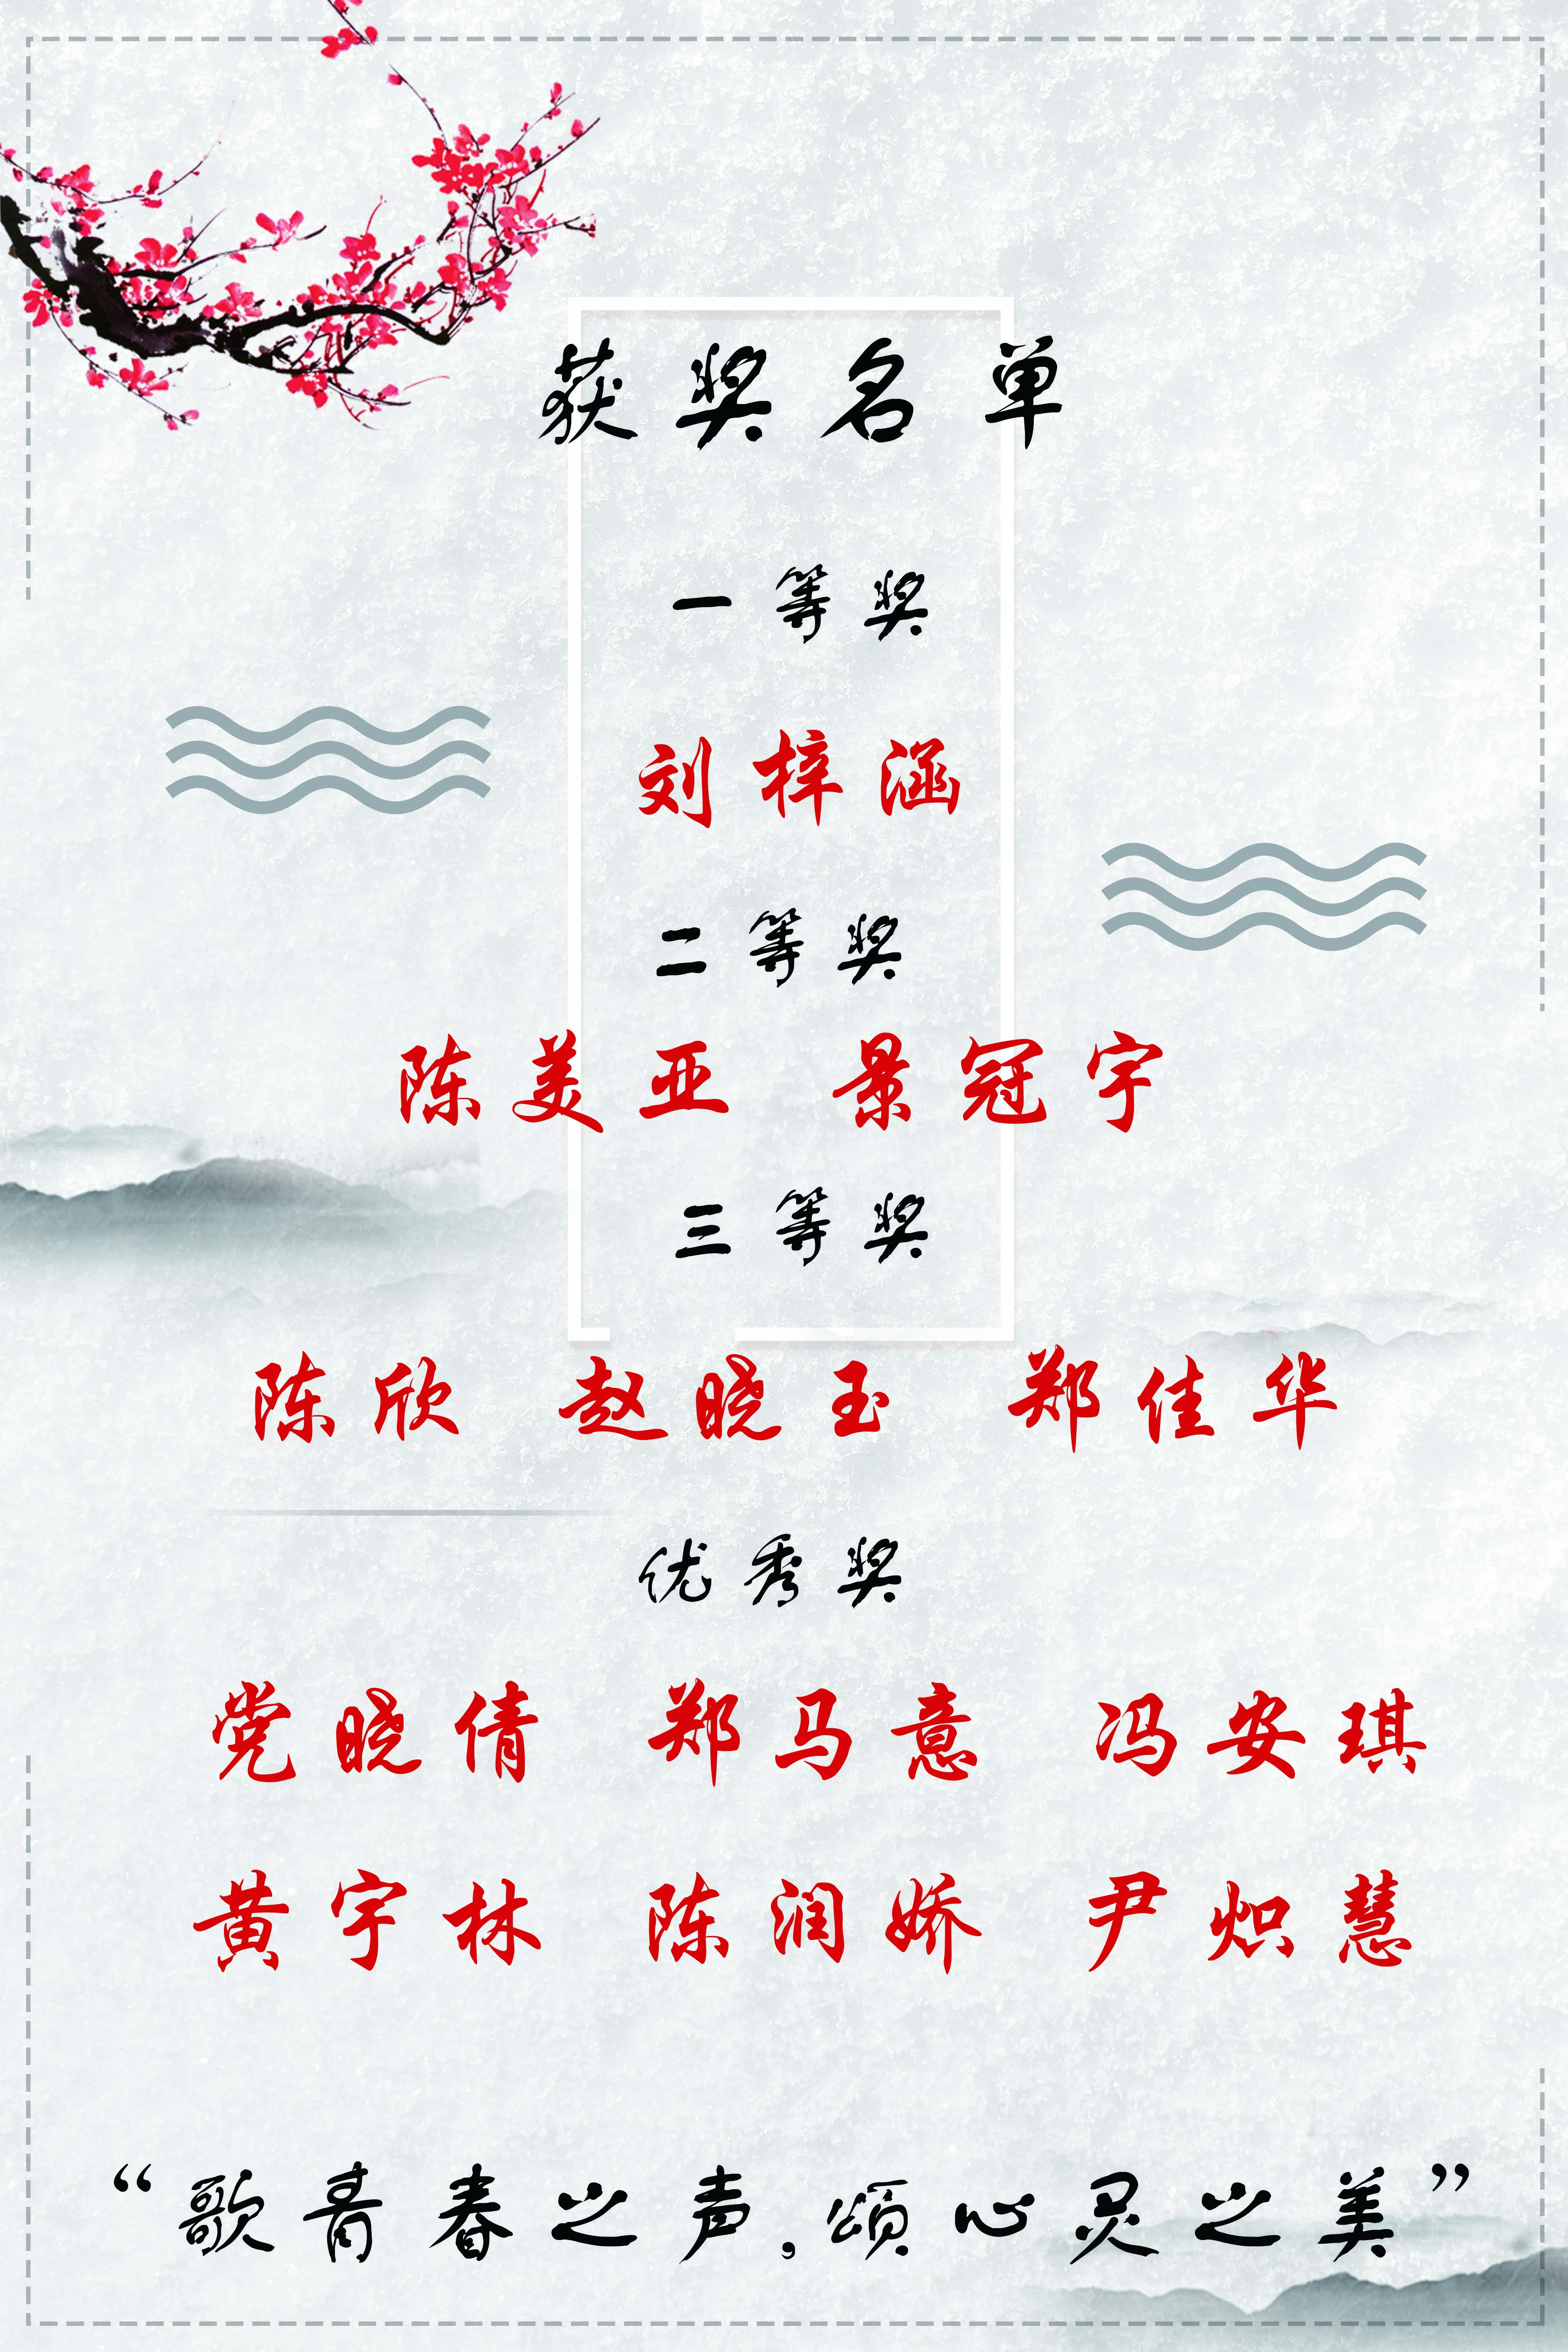 获奖名单
一等奖
刘梓涵
二等奖
陈美亚 景冠宇
三等奖
陈欣 赵晓玉 郑佳华
优秀奖
党晓倩 郑马意 冯安琪
黄宇林 陈润娇 尹炽慧
“歌青春之声,颂心灵之美”